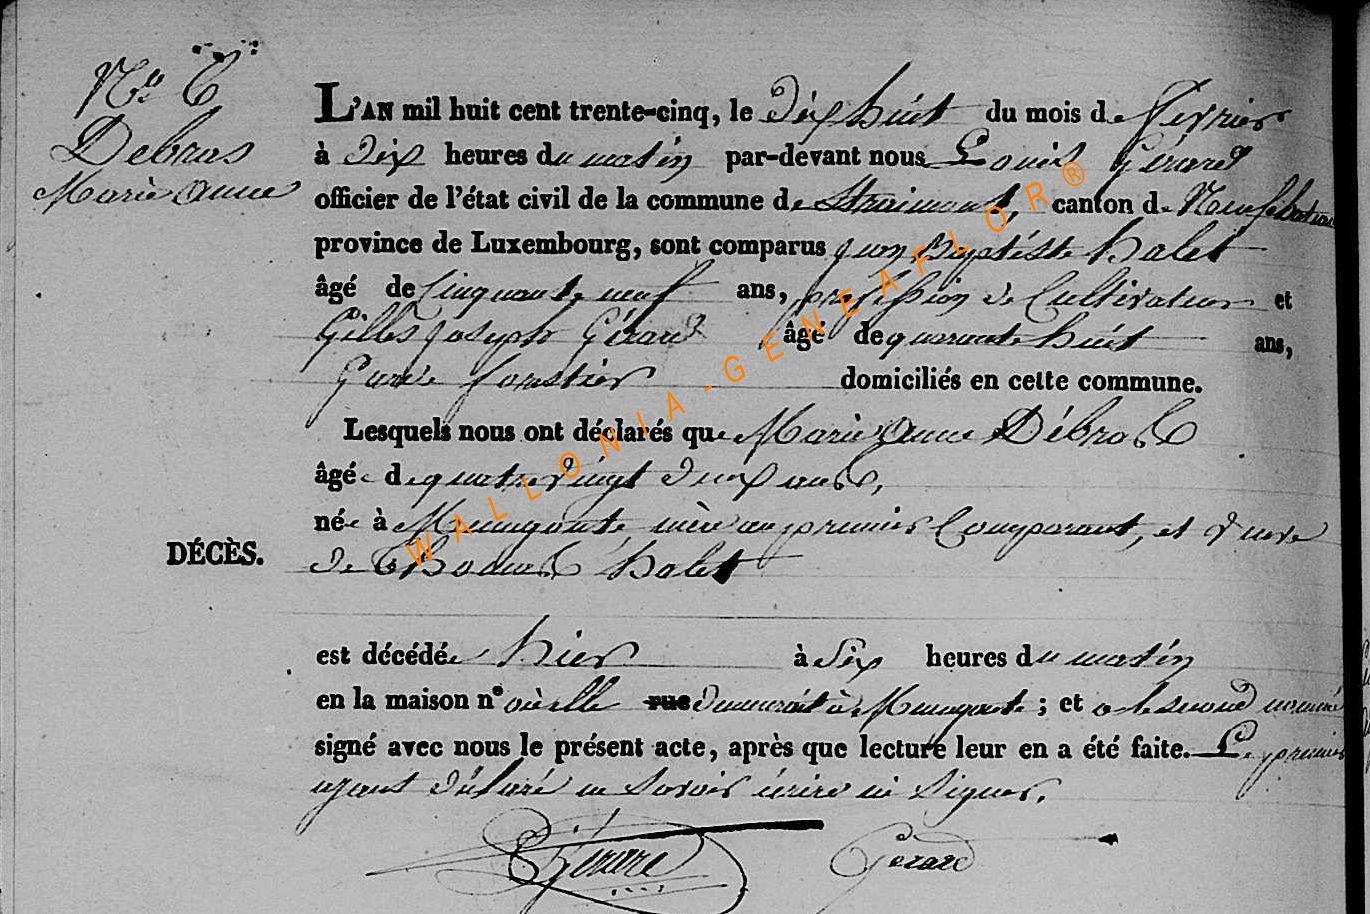 N° 6
Debras
Marie Anne
L'AN mil huit cent trente-cinq, le dix huit du mois de fevrier
à dix heures du matin par-devant nous Louis Gérard
officier de l'état civil de la commune de Straimont, canton de Neufchateau
province de Luxembourg, sont comparus Jean Baptiste halet
âgé de Cinquante neuf ans, profession de Cultivateur et
Gilles joseph Gérard âgé de quarante huit ans,
Garde forestier domiciliés en cette commune.
Lesquels nous ont déclarés que Marie Anne Débras
âgée de quatre vingt deux ans,
née à Menugoutte, mère au premier Comparant, et veuve
de Thomas halet
DÉCÈS.
est décédée hier à Six heures du matin
en la maison n° où elle rue demeurait à Menugoutte ; et a le second nommé
signé avec nous le présent acte, après que lecture leur en a été faite. Le premier
ayant déclaré ne Savoir écrire ni Signer.
Gérard
Gerard
WALLONIA-GENEAFLOR®